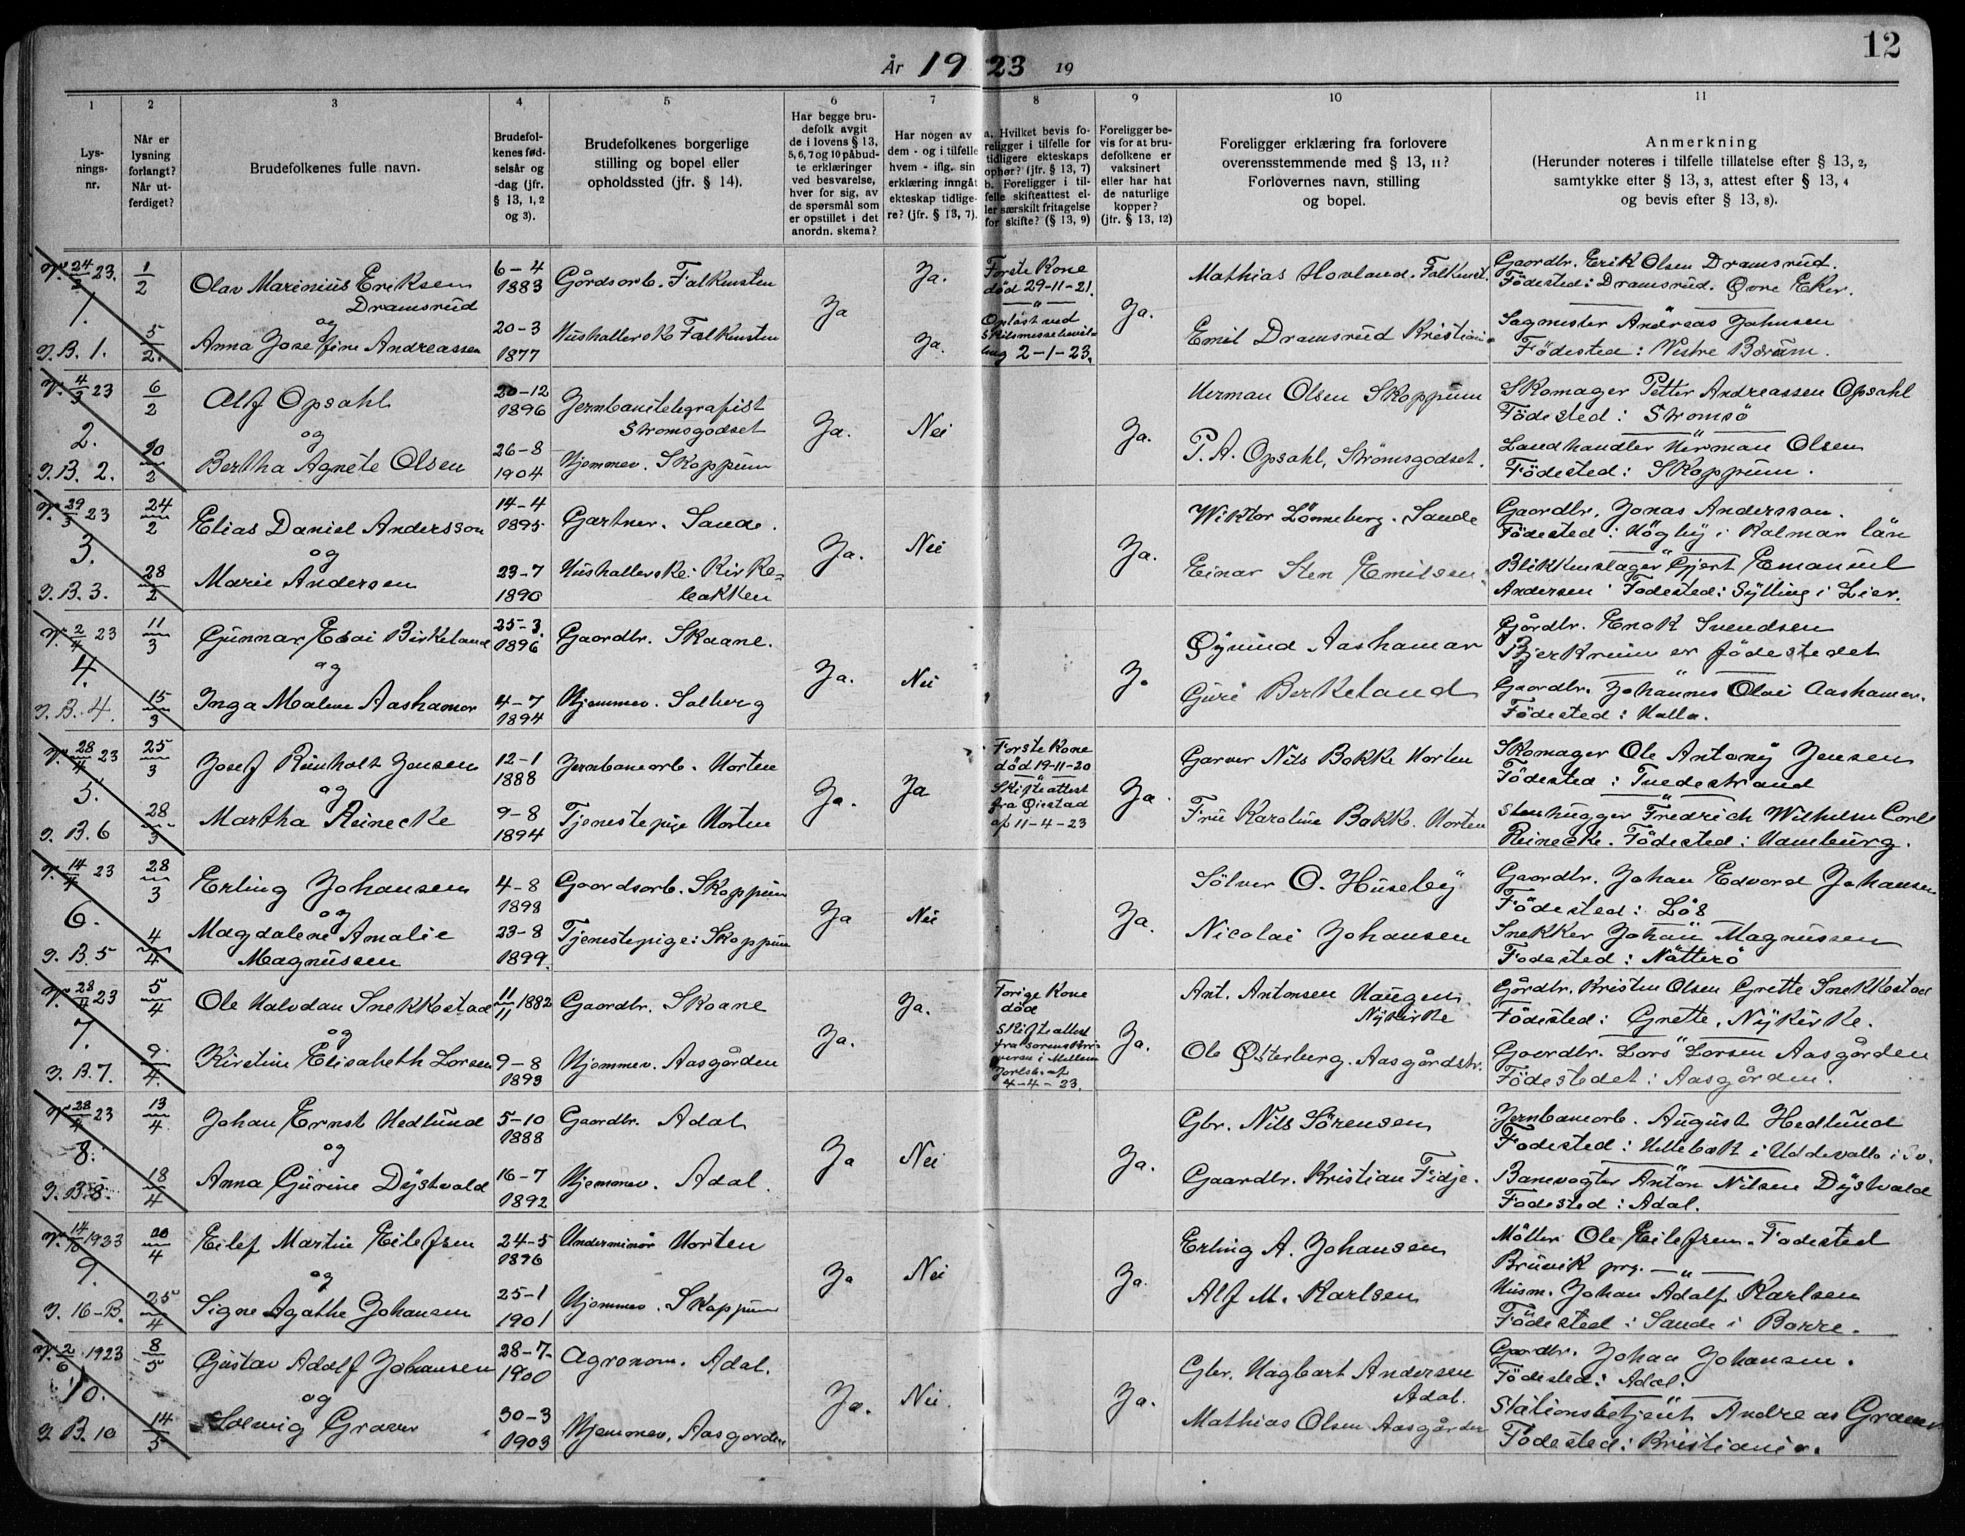 År 1923 19
12
1 2 3 4 5 6 7 8 9 10 11
Lys-
nings-
nr.
Når er
lysning
forlangt?
Når ut-
ferdiget?
Brudefolkenes fulle navn.
Brudefol-
kenes fød-
selsår og
-dag (jfr.
§ 13, 1, 2
og 3).
Brudefolkenes borgerlige
stilling og bopel eller
opholdssted (jfr. § 14).
Har begge bru-
defolk avgit
de i lovens § 13,
5, 6, 7 og 10 påbud-
te erklæringer
ved besvarelse,
hver for sig, av
de spørsmål som
er opstillet i det
anordn. skema?
Har nogen av
dem - og i tilfelle
hvem - iflg. sin
erklæring inngåt
ekteskap tidlige-
re? (jfr. § 13, 7).
a. Hvilket bevis fo-
religger i tilfelle for
tidligere ekteskaps
ophør? (jfr. § 13, 7)
b. Foreligger i til-
felle skifteattest el-
ler særskilt fritagelse
for skifte? (§ 13, 9)
Foreligger be-
vis for at bru-
defolkene er
vaksinert
eller har hat
de naturlige
kopper?
(jfr. § 13, 12)
Foreligger erklæring fra forlovere
overensstemmende med § 13, 11?
Forlovernes navn, stilling
og bopel.
Anmerkning
(Herunder noteres i tilfelle tillatelse efter § 13, 2,
samtykke efter § 13, 3, attest efter § 13, 4
og bevis efter § 13, 8).
V. 24/3 23.
1.
J.B. 1.
1/2
5/2.
Olav Marinius Eriksen
Dramsrud
og
Anna Josefine Andreassen
6-4
1883
20-3
1877
Gårdsarb. Falkensten
Hushallerske Falkensten
Ja
Ja.
Ja.
Første Kone
död 29-11-21.
"
Oplöst ved
Skilsmessebevil-
ling 2-1-23.
Ja.
Mathias Hovland. Falkenst.
Emil Dramsrud Kristiania
Gaardbr. Erik Olsen Dramsrud.
Födested: Dramsrud. Övre Eker.
Sagmester Andreas Johnsen
Födested: Vestre Bærum.
V. 4/3 23
2.
J.B. 2.
6/2
10/2
Alf Opsahl
og
Bertha Agnete Olsen
20-12
1896
26-8
1904
Jernbanetelegrafist
Strömsgodset
Hjemmev. Skoppum
Ja.
Nei
Ja.
Herman Olsen Skoppum
P.A. Opsahl, Strömsgodset.
Skomager Petter Andreassen Opsahl
Födested: Strömsö
Landhandler Herman Olsen
Födested: Skoppum.
V. 29/3 23
3.
J.B. 3.
24/2
28/2
Elias Daniel Andersson
og
Marie Andersen
14-4
1895
23-7
1890
Gartner. Sande.
Hushallerske: Kirke-
bakken
Ja.
Nei
Ja.
Wiktor Lönneberg. Sande
Einar Sten Emilsen.
Gaardbr. Jonas Andersson.
Födested: Högby i Kalmar län
Blikkenslager Gjert Emanuel
Andersen Födested: Sylling i Lier.
V. 2/4 23
4.
J.B. 4.
11/3
15/3
Gunnar Esai Birkeland
og
Inga Malene Aashamar
25-3.
1896
4-7
1894
Gaardbr. Skaane.
Hjemmev. Solberg
Ja.
Nei
Ja
Öyvind Aashamar
Guri Berkeland
Gårdbr. Enok Svendsen
Bjerkreim er födestedet
Gaardbr. Johannes Olai Aashamar.
Födested: Halla.
V. 28/4 23
5.
J.B. 6
25/3
28/3
Josef Reinholt Jensen
og
Martha Reinecke
12-1
1888
9-8
1894
Jernbanearb. Horten
Tjenestepige Horten
Ja.
Ja
Förste Kone
död 19-11-20
"
Skifteattest
fra Öiestad
af 11-4-23
Ja.
Garver Nils Bakke Horten
Fru Karoline Bakke. Horten
Skomager Ole Antony Jensen
Födested: Tvedestrand
Stenhugger Fredrich Wilhelm Carl
Reinecke. Födested: Hamburg.
V. 14/4 23
6.
J.B. 5
28/3
4/4
Erling Johansen
og
Magdalene Amalie
Magnussen
4-8
1898
23-8
1899.
Gaardsarb. Skoppum
Tjenestepige: Skoppum
Ja
Nei
Ja.
Sölver O. Huseby
Nicolai Johansen
Gaardbr. Johan Edvard Johansen
Födested: Lös
Snekker Johan Magnussen
Födested: Nötterö
V. 28/4 23
7.
J.B. 7.
5/4
9/4.
Ole Halvdan Snekkestad
og
Kirstine Elisabeth Larsen
11/11 1882
9-8
1893
Gaardbr. Skoane
Hjemmev. Aasgården
Ja.
Ja.
Forige Kone
död
Skifteattest
fra Sorenskri-
veren i Mellem
Jarlsb. af
4-4-23.
Ja.
Ant. Antonsen Haugen.
Nykirke
Ole Österberg. Aasgårdstr.
Gårdbr. Kristen Olsen Grette Snekkestad
Födested: Grette, Nykirke.
Gaardbr. Lars Larsen Aasgården
Födestedet: Aasgården.
V. 28/4 23
8.
J.B. 8.
13/4
18/4
Johan Ernst Hedlund
og
Anna Gurine Dystvold
5-10
1888
16-7
1892
Gaardbr. Adal
Hjemmev. Adal.
Ja
Nei
Ja.
Gbr. Nils Sörensen
Gaardbr. Kristian Fidje.
Jernbanearb. August Hedlund
Födested: Hellebak i Uddevalla i Sv.
Banevogter Anton Nilsen Dystvold
Födested: Adal.
V. 14/10 1923
9.
J. 16-B.
20/4
25/4
Eilef Martin Eilefsen
og
Signe Agathe Johansen
24-5
1896
25-1
1901
Underminör Horten
Hjemmev. Skoppum
Ja
Nei
Ja.
Erling A. Johansen
Alf M. Karlsen
Möller Ole Eilefsen. Födested
Bruvik prg.
Husm. Johan Adolf Karlsen
Födested: Sande i Borre.
V. 2/6 1923
10.
J.B. 10
8/5
14/5
Gustav Adolf Johansen
og
Solveig Graver
28-7-
1900
30-3
1903
Agronom. Adal.
Hjemmev. Aasgården
Ja.
Nei.
Ja.
Gbr. Hagbart Andersen
Adal.
Mathias Olsen Aasgården
Gaardbr. Johan Johansen.
Födested: Adal.
Stationsbetjent Andreas Graver
Födested: Kristiania.